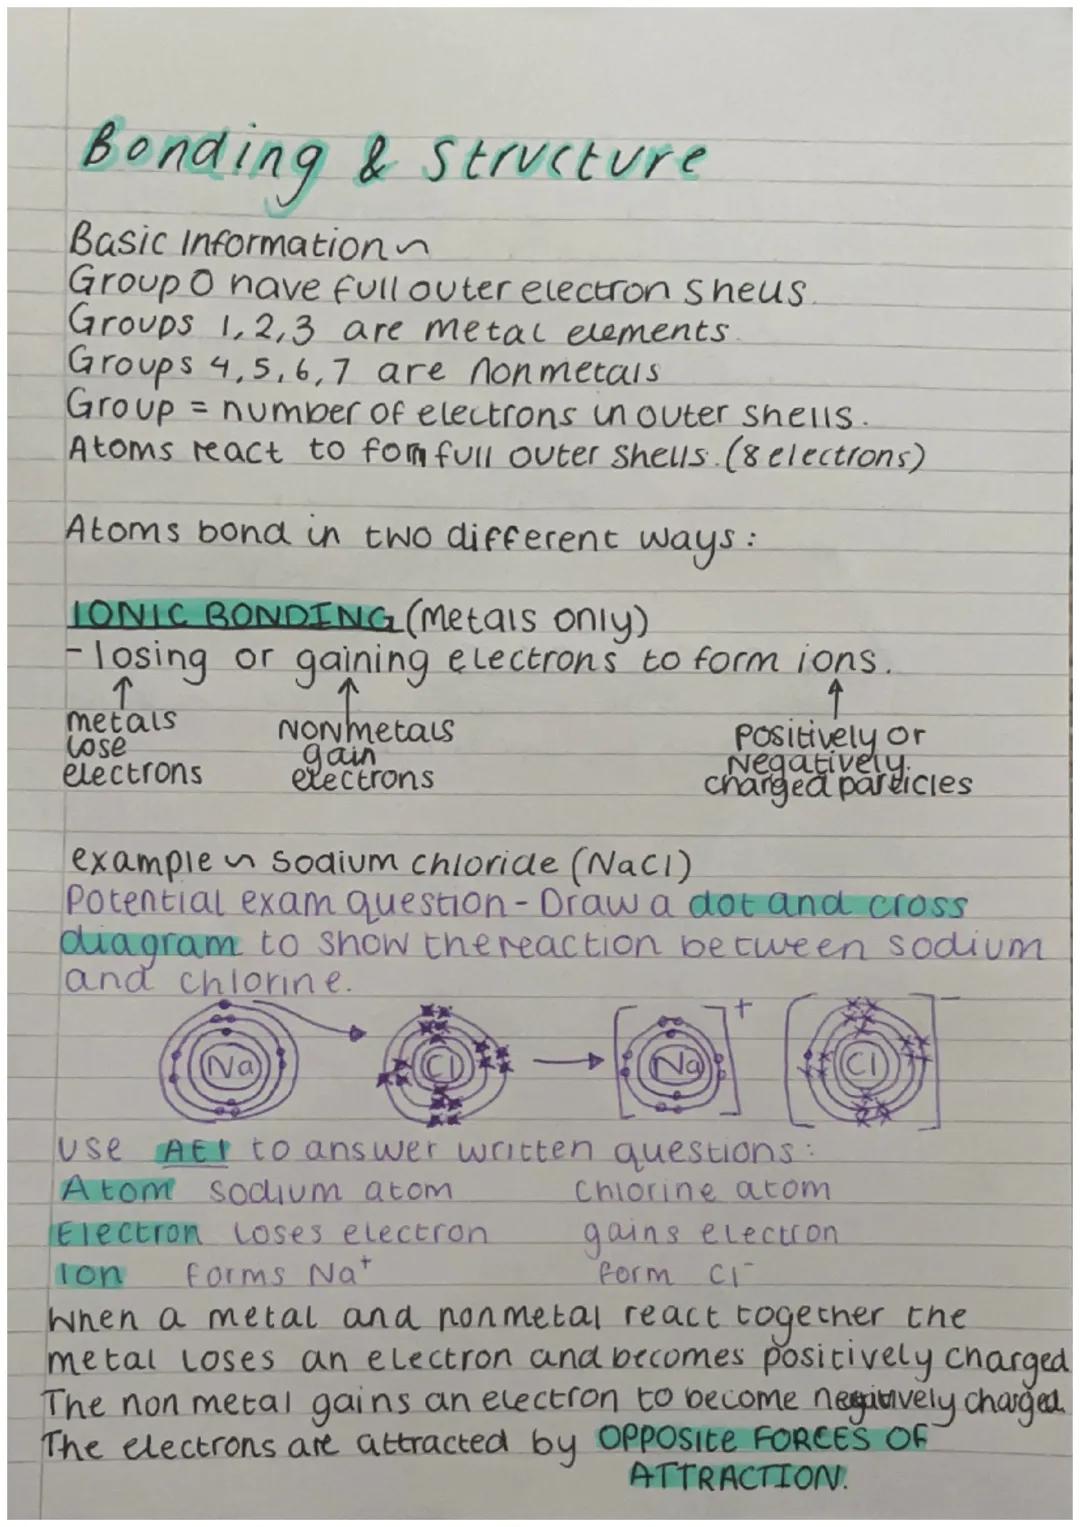 Bonding & Structure
Basic Information ~
Group 0 have full outer electron shells.
Groups 1, 2, 3 are metal elements.
Groups 4, 5, 6, 7 are nonmetals
Group = number of electrons in outer shells.
Atoms react to form full outer shells. (8 electrons)
Atoms bond in two different ways:
IONIC BONDING (Metals only)
- losing or gaining electrons to form ions.
metals lose electrons
Nonmetals gain electrons
Positively or Negatively charged particles
example ~ Sodium chloride (NaCl)
Potential exam question - Draw a dot and cross
diagram to show the reaction between sodium
and chlorine.
Na Cl Na + Cl -
Use AEI to answer written questions:
Atom sodium atom Chlorine atom
Electron loses electron gains electron
Ion forms Na+ form Cl-
When a metal and nonmetal react together the
metal loses an electron and becomes positively charged
The non metal gains an electron to become negitively charged.
The electrons are attracted by OPPOSITE FORCES OF
ATTRACTION.